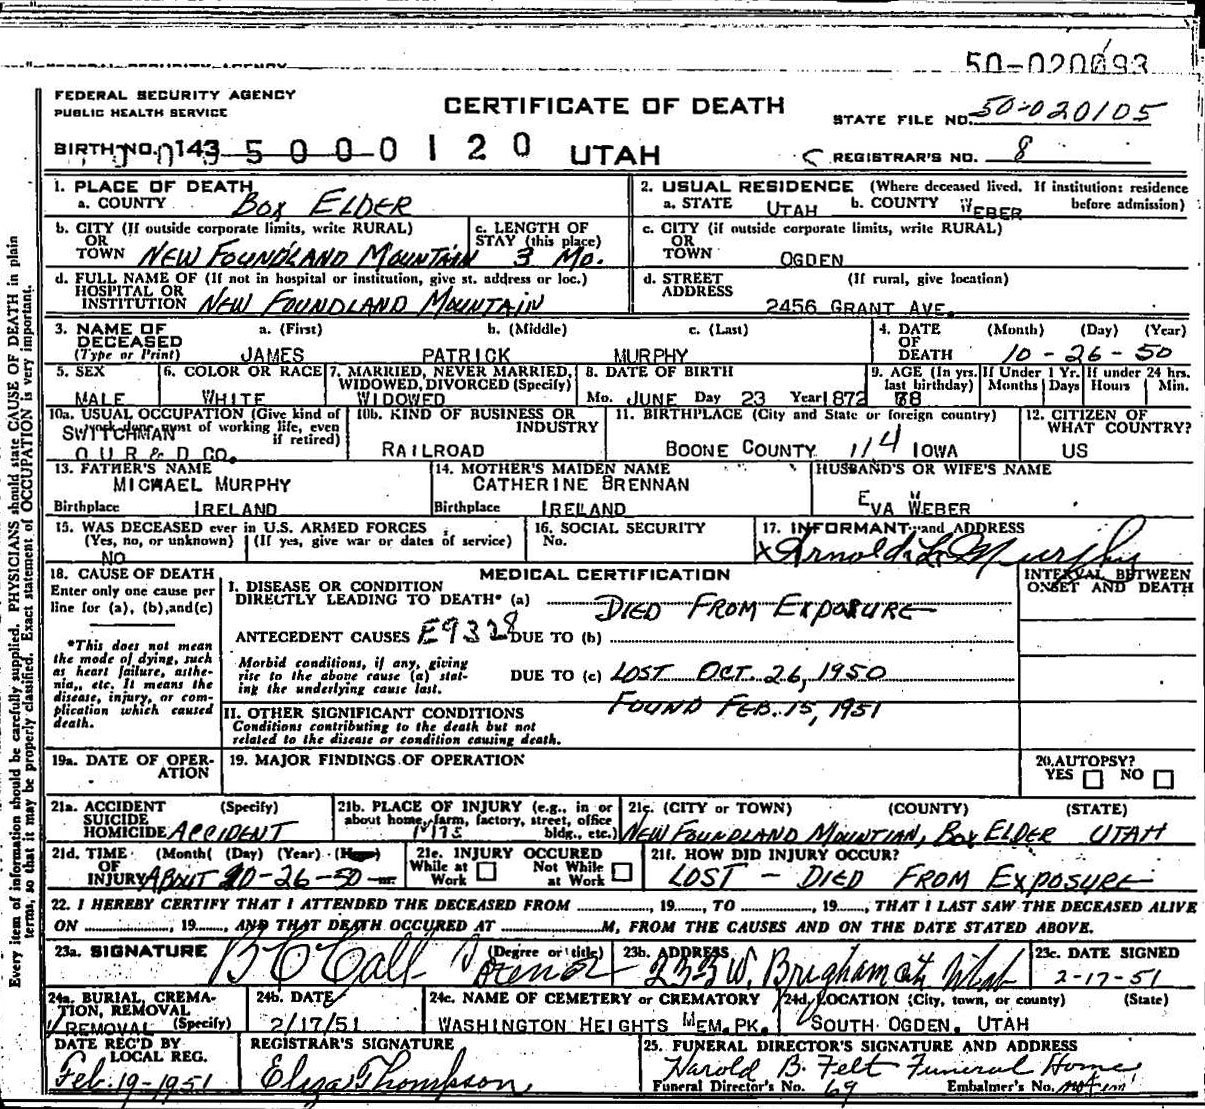 50-020693
FEDERAL SECURITY AGENCY
PUBLIC HEALTH SERVICE
CERTIFICATE OF DEATH
STATE FILE NO. 50-020105
BIRTH NO. 143 5 0 0 0 1 2 0 UTAH
REGISTRAR'S NO. 8
1. PLACE OF DEATH
a. COUNTY BOX ELDER
2. USUAL RESIDENCE (Where deceased lived. If institution: residence before admission)
a. STATE UTAH b. COUNTY WEBER
b. CITY (If outside corporate limits, write RURAL) OR TOWN NEW FOUNDLAND MOUNTAIN
c. LENGTH OF STAY (this place) 3 MO.
c. CITY (If outside corporate limits, write RURAL) OR TOWN OGDEN
d. FULL NAME OF (If not in hospital or institution, give st. address or loc.) HOSPITAL OR INSTITUTION NEW FOUNDLAND MOUNTAIN
d. STREET ADDRESS (If rural, give location) 2456 GRANT AVE.
3. NAME OF DECEASED (Type or Print) a. (First) JAMES b. (Middle) PATRICK c. (Last) MURPHY
4. DATE OF DEATH (Month) (Day) (Year) 10-26-50
5. SEX MALE
6. COLOR OR RACE WHITE
7. MARRIED, NEVER MARRIED, WIDOWED, DIVORCED (Specify) WIDOWED
8. DATE OF BIRTH Mo. JUNE Day 23 Year 1872
9. AGE (In yrs. last birthday) 78 If Under 1 Yr. Months Days If under 24 hrs. Hours Min.
10a. USUAL OCCUPATION (Give kind of work done most of working life, even if retired) SWITCHMAN O U R & D CO.
10b. KIND OF BUSINESS OR INDUSTRY RAILROAD
11. BIRTHPLACE (City and State or foreign country) BOONE COUNTY 114 IOWA
12. CITIZEN OF WHAT COUNTRY? US
13. FATHER'S NAME MICHAEL MURPHY
Birthplace IRELAND
14. MOTHER'S MAIDEN NAME CATHERINE BRENNAN
Birthplace IRELAND
HUSBAND'S OR WIFE'S NAME EVA WEBER
15. WAS DECEASED ever in U.S. ARMED FORCES (Yes, no, or unknown) (If yes, give war or dates of service) NO
16. SOCIAL SECURITY No.
17. INFORMANT and ADDRESS X Arnold L. Murphy
18. CAUSE OF DEATH
Enter only one cause per line for (a), (b), and (c)
*This does not mean the mode of dying, such as heart failure, asthenia, etc. It means the disease, injury, or complication which caused death.
MEDICAL CERTIFICATION
INTERVAL BETWEEN ONSET AND DEATH
I. DISEASE OR CONDITION DIRECTLY LEADING TO DEATH* (a) DIED FROM EXPOSURE
ANTECEDENT CAUSES E9328 DUE TO (b)
Morbid conditions, if any, giving rise to the above cause (a) stating the underlying cause last.
DUE TO (c) LOST OCT. 26, 1950
FOUND FEB. 15, 1951
II. OTHER SIGNIFICANT CONDITIONS
Conditions contributing to the death but not related to the disease or condition causing death.
19a. DATE OF OPERATION
19. MAJOR FINDINGS OF OPERATION
20. AUTOPSY? YES NO
21a. ACCIDENT SUICIDE HOMICIDE (Specify) ACCIDENT
21b. PLACE OF INJURY (e.g., in or about home, farm, factory, street, office bldg., etc.) MTS
21c. (CITY or TOWN) (COUNTY) (STATE) NEW FOUNDLAND MOUNTIAN, BOX ELDER UTAH
21d. TIME OF INJURY (Month) (Day) (Year) ABOUT 10-26-50
21e. INJURY OCCURED While at Work Not While at Work
21f. HOW DID INJURY OCCUR? LOST - DIED FROM EXPOSURE
22. I HEREBY CERTIFY THAT I ATTENDED THE DECEASED FROM ......, 19...., TO ......, 19...., THAT I LAST SAW THE DECEASED ALIVE
ON ......, 19...., AND THAT DEATH OCCURED AT ...... M, FROM THE CAUSES AND ON THE DATE STATED ABOVE.
23a. SIGNATURE B C Call (Degree or title)
23b. ADDRESS 233 W. Brigham City Utah
23c. DATE SIGNED 2-17-51
24a. BURIAL, CREMATION, REMOVAL (Specify) REMOVAL
24b. DATE 2/17/51
24c. NAME OF CEMETERY or CREMATORY WASHINGTON HEIGHTS MEM. PK.
24d. LOCATION (City, town, or county) (State) SOUTH OGDEN, UTAH
DATE REC'D BY LOCAL REG. Feb. 19-1951
REGISTRAR'S SIGNATURE Eliza Thompson
25. FUNERAL DIRECTOR'S SIGNATURE AND ADDRESS Harold B. Felt Funeral Home
Funeral Director's No. 69 Embalmer's No.
Every item of information should be carefully supplied. PHYSICIANS should state CAUSE OF DEATH in plain
terms, so that it may be properly classified. Exact statement of OCCUPATION is very important.